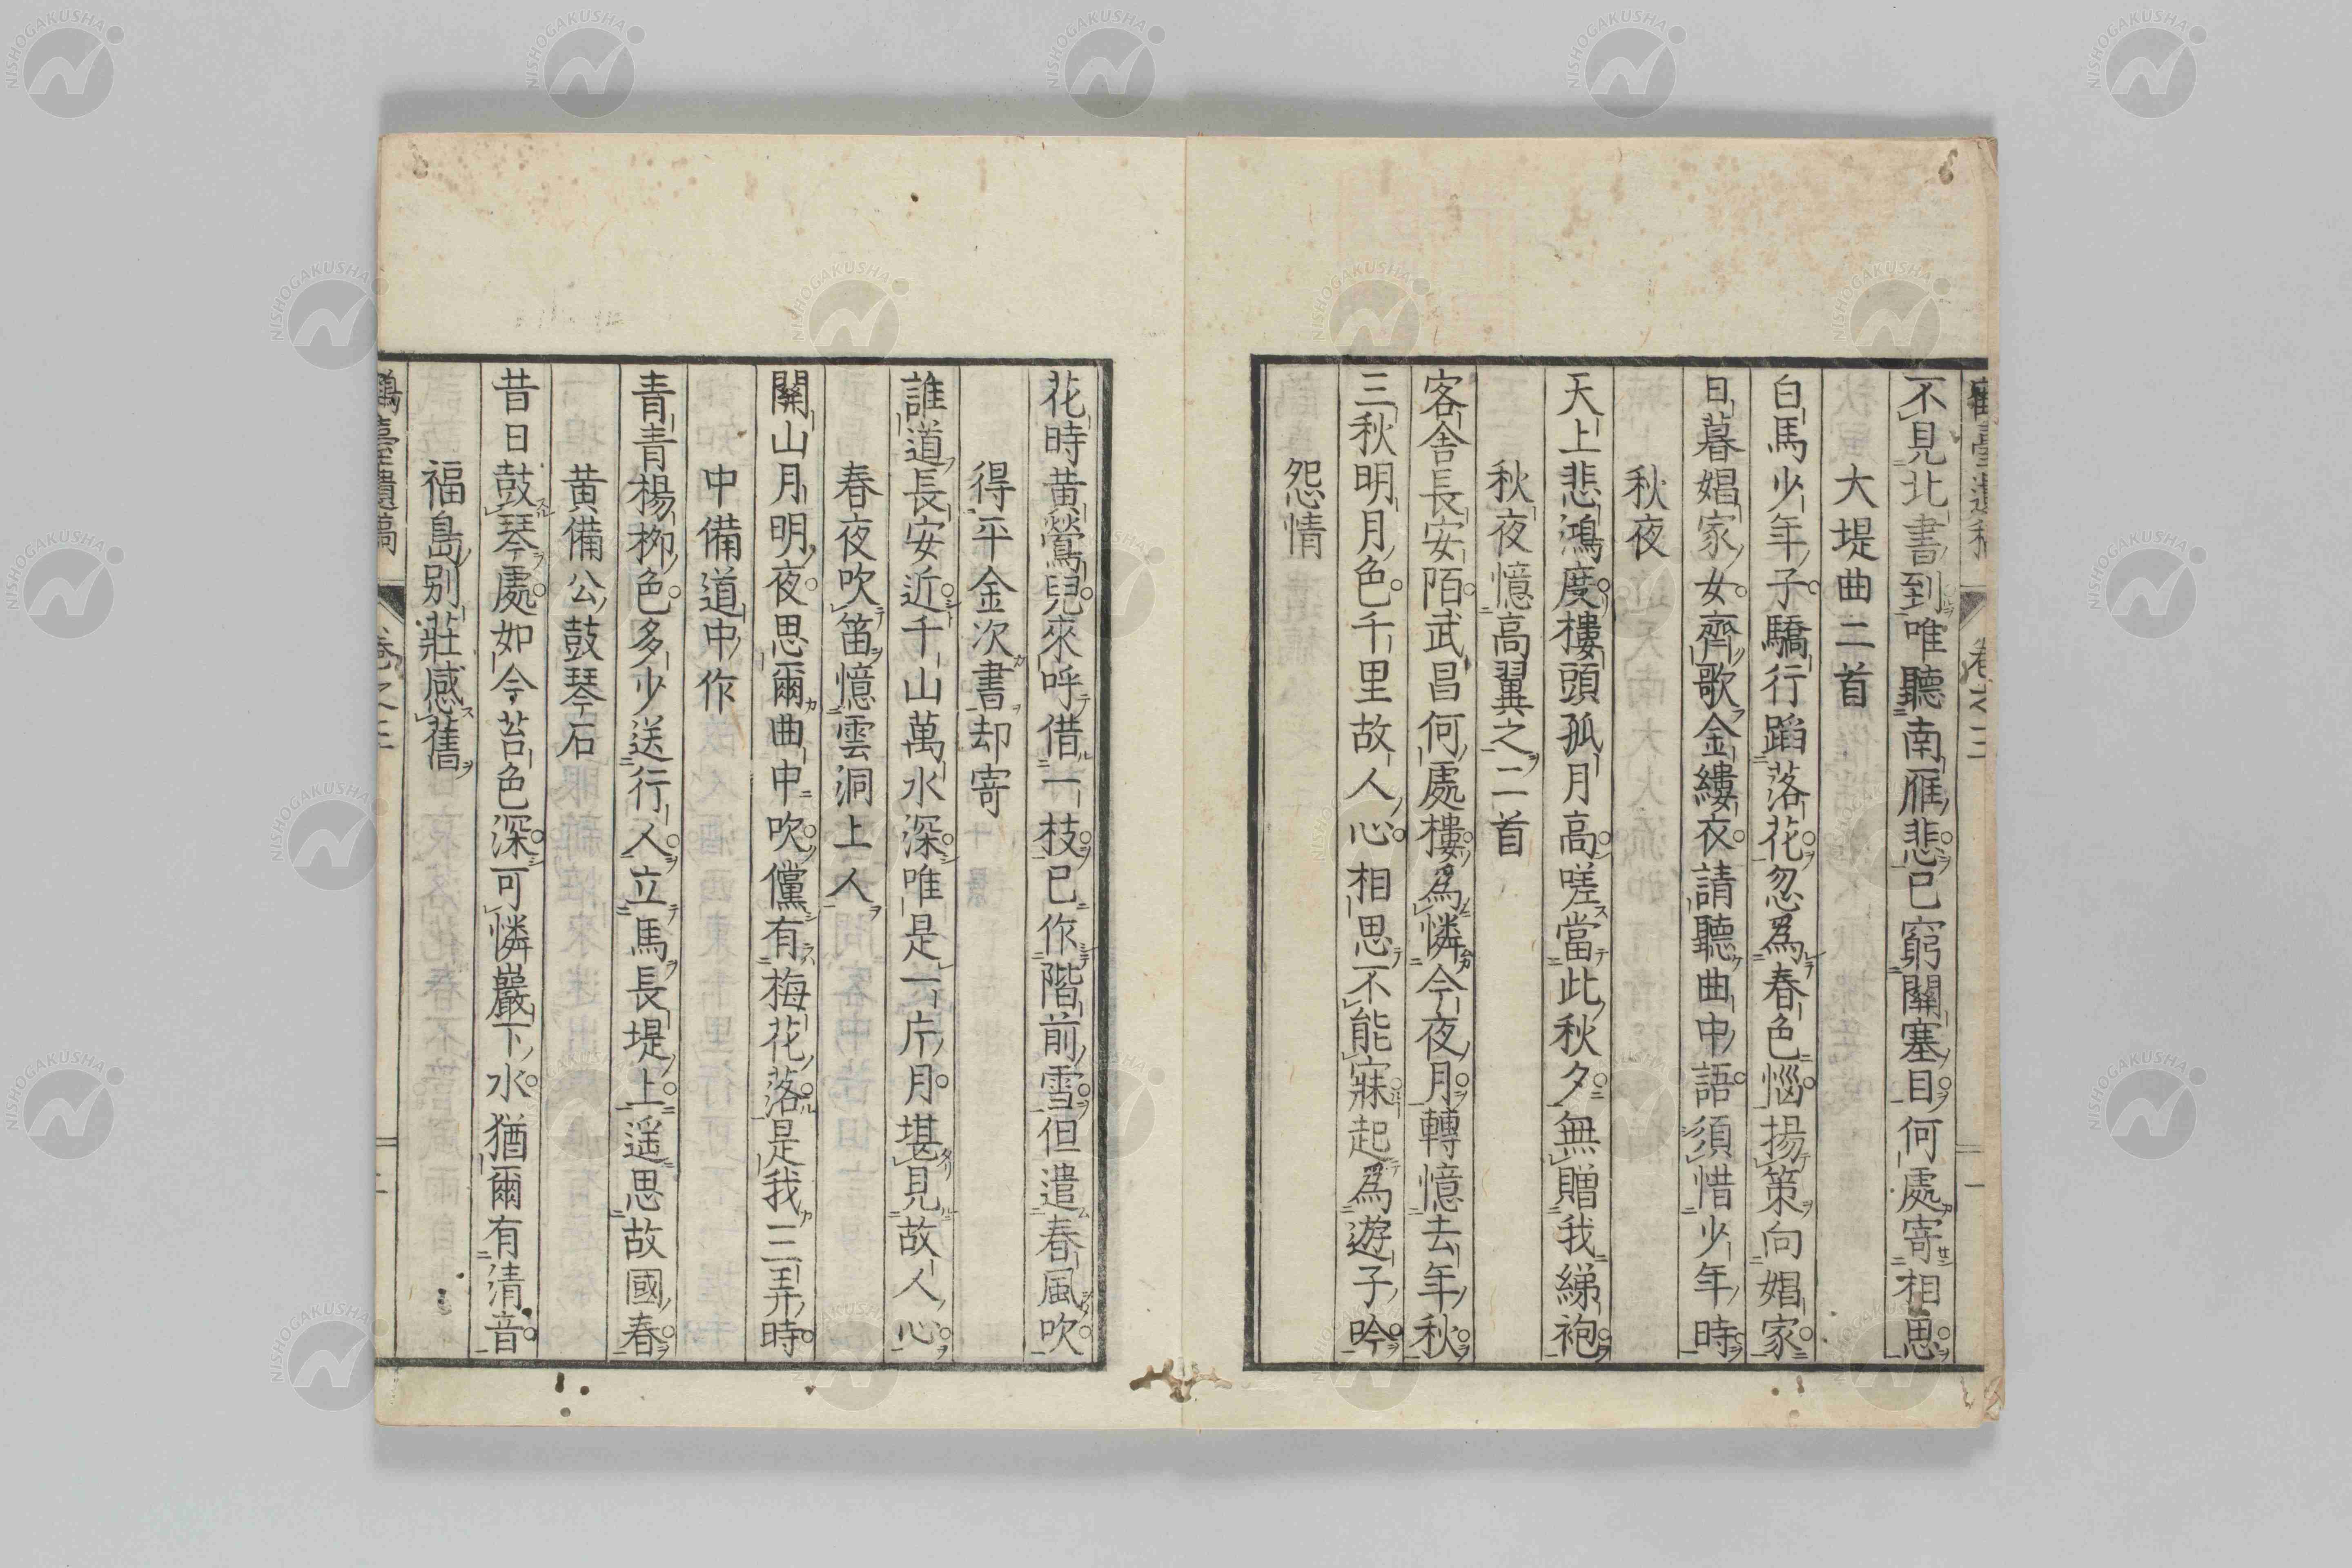 不見北書到唯聽南雁悲已窮關塞目何處寄相思
大堤曲二首
白馬少年子驕行蹈落花忽爲春色惱揚策向娼家
日暮娼家女齊歌金縷衣請聽曲中語須惜少年時
秋夜
天上悲鴻度樓頭孤月高嗟當此秋夕無贈我綈袍
秋夜憶高翼之二首
客舍長安陌武昌何處樓爲憐今夜月轉憶去年秋
三秋明月色千里故人心相思不能寐起爲遊子吟
怨情
花時黃鶯兒來呼借一枝已作階前雪但遣春風吹
得平金次書却寄
誰道長安近千山萬水深唯是一片月堪見故人心
春夜吹笛憶雲洞上人
關山月明夜思爾曲中吹儻有梅花落是我三弄時
中備道中作
青青楊栁色多少送行人立馬長堤上遥思故國春
黃備公鼓琴石
昔日鼓琴處如今苔色深可憐巖下水猶爾有清音
福島別莊感舊
臺遺稿 卷之二
NISHOGAKUSHA